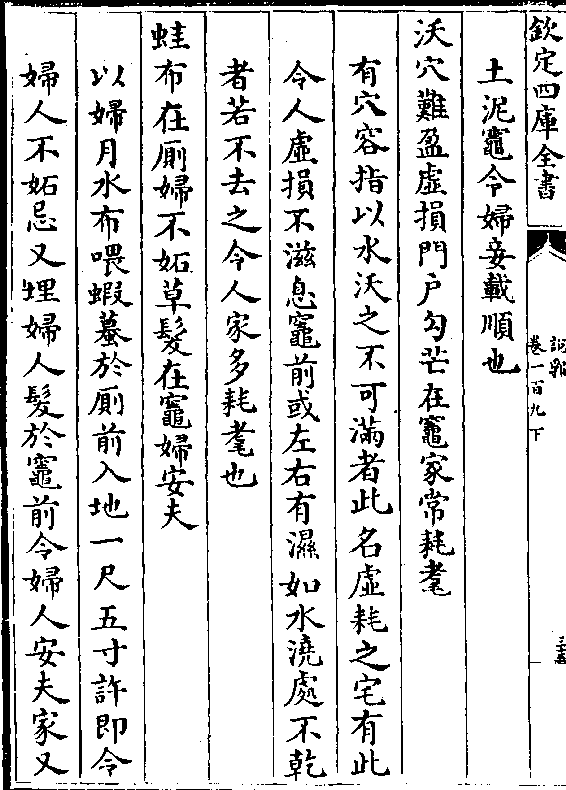 欽定四庫全書
說郛
卷一百九下
土泥竈令婦妾載順也
沃穴難盈虛損門户勾芒在竈家常耗耄
有穴容指以水沃之不可滿者此名虛耗之宅有此
令人虛損不滋息竈前或左右有濕如水澆處不乾
者若不去之令人家多耗耄也
蛙布在厠婦不妬草髮在竈婦安夫
以婦月水布喂蝦蟇於厠前入地一尺五寸許即令
婦人不妬忌又埋婦人髮於竈前令婦人安夫家又